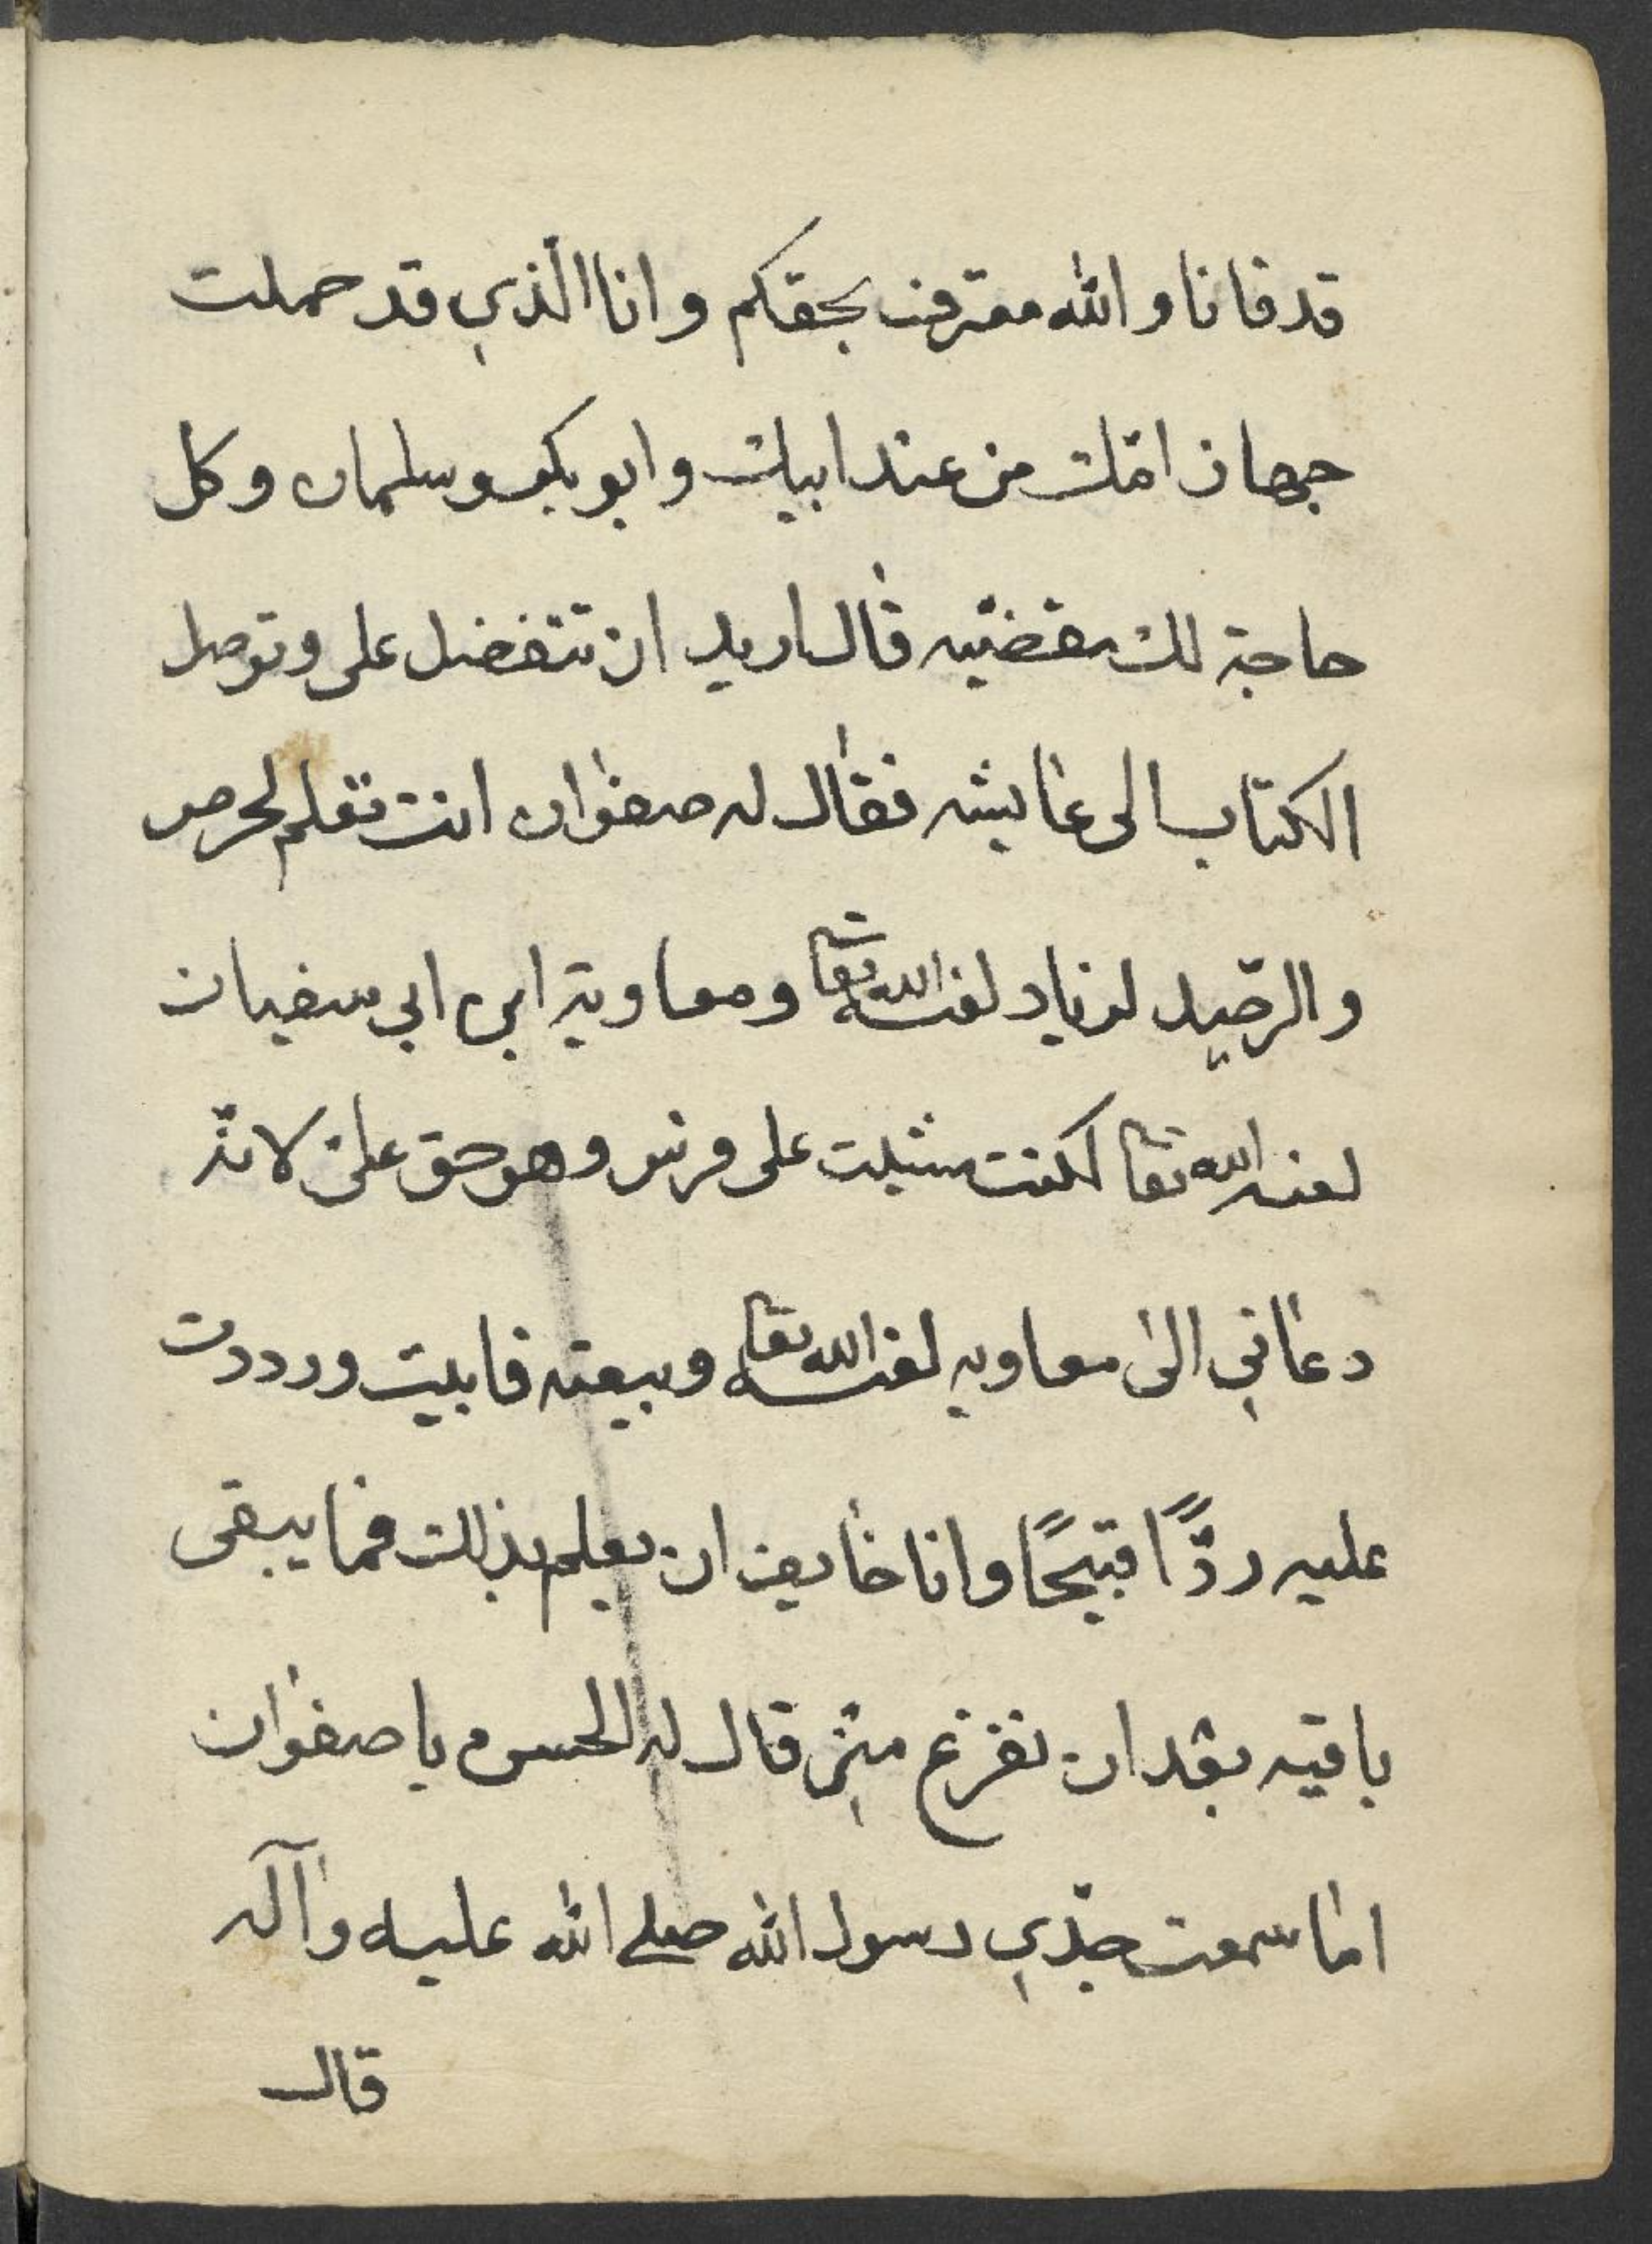 قد فانا والله معترف بحقكم وانا الّذي قد حملت
جهاز امّك من عند ابيك وابو بكر وسلمان وكل
حاجة لك مقضيّه قال اريد ان تتفضل على وتوصل
الكتاب الى عايشه فقال له صفوان انت تعلم لحرص
والرصيد لزياد لعنه الله تعا ومعاوية ابن ابي سفيان
لعنه الله تعا لكنت مثلت على فرس وهو حق على لانه
دعاني الى معاويه لعنه الله تعا وبيعته فابيت ورددت
عليه ردًّا قبيحًا وانا خايف ان يعلم بذلك فما يبقى
باقيه بعد ان تفزع منى قال له الحسن يا صفوان
اما سمعت جدّي رسول الله صلے الله عليه وآله
قال